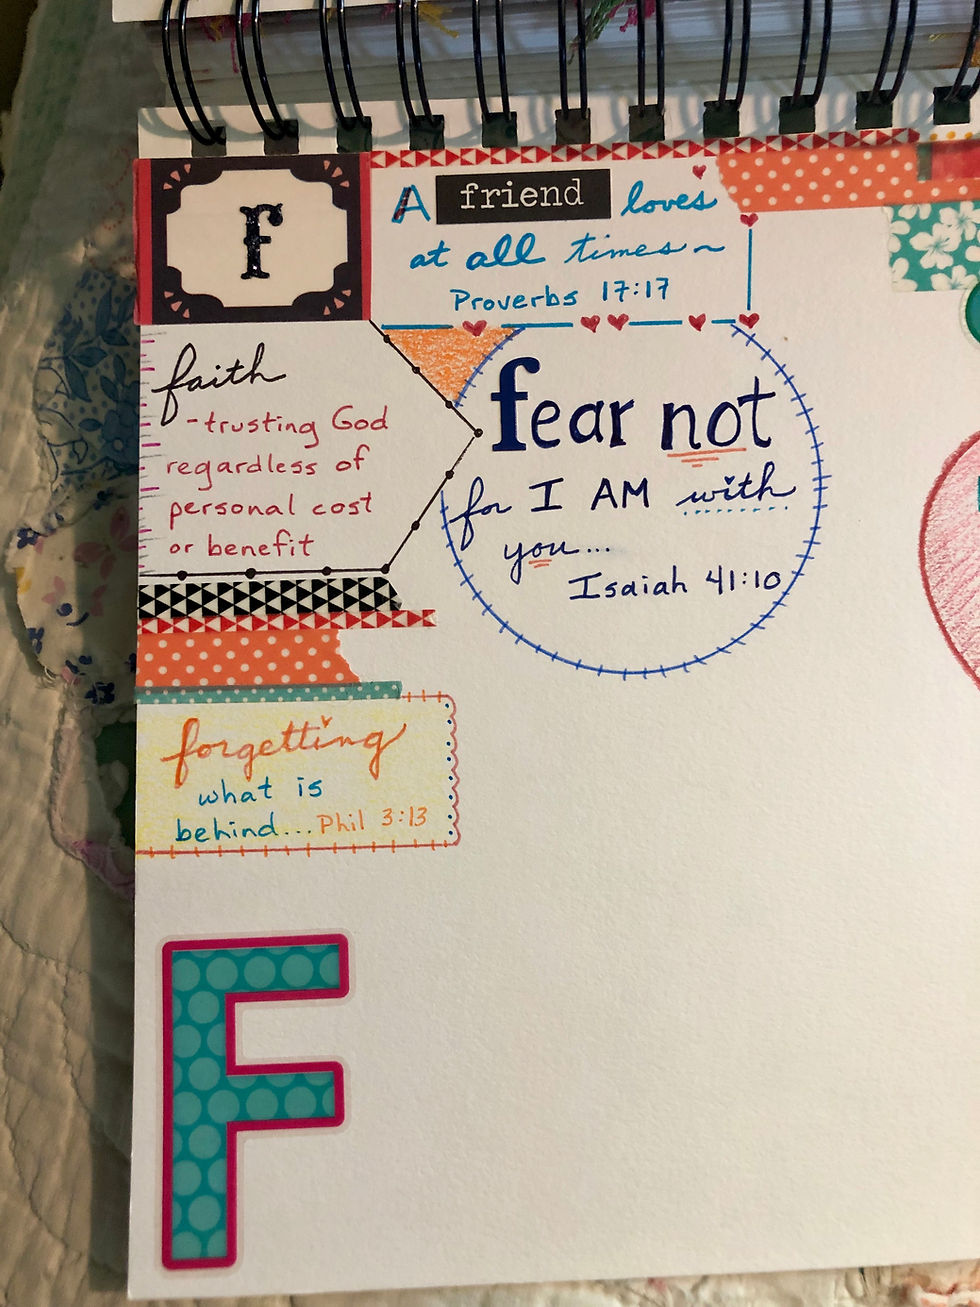 f
A friend loves
at all times~
Proverbs 17:17
faith
-trusting God
regardless of
personal cost
or benefit
fear not
for I AM with
you...
Isaiah 41:10
forgetting
what is
behind... Phil 3:13
F